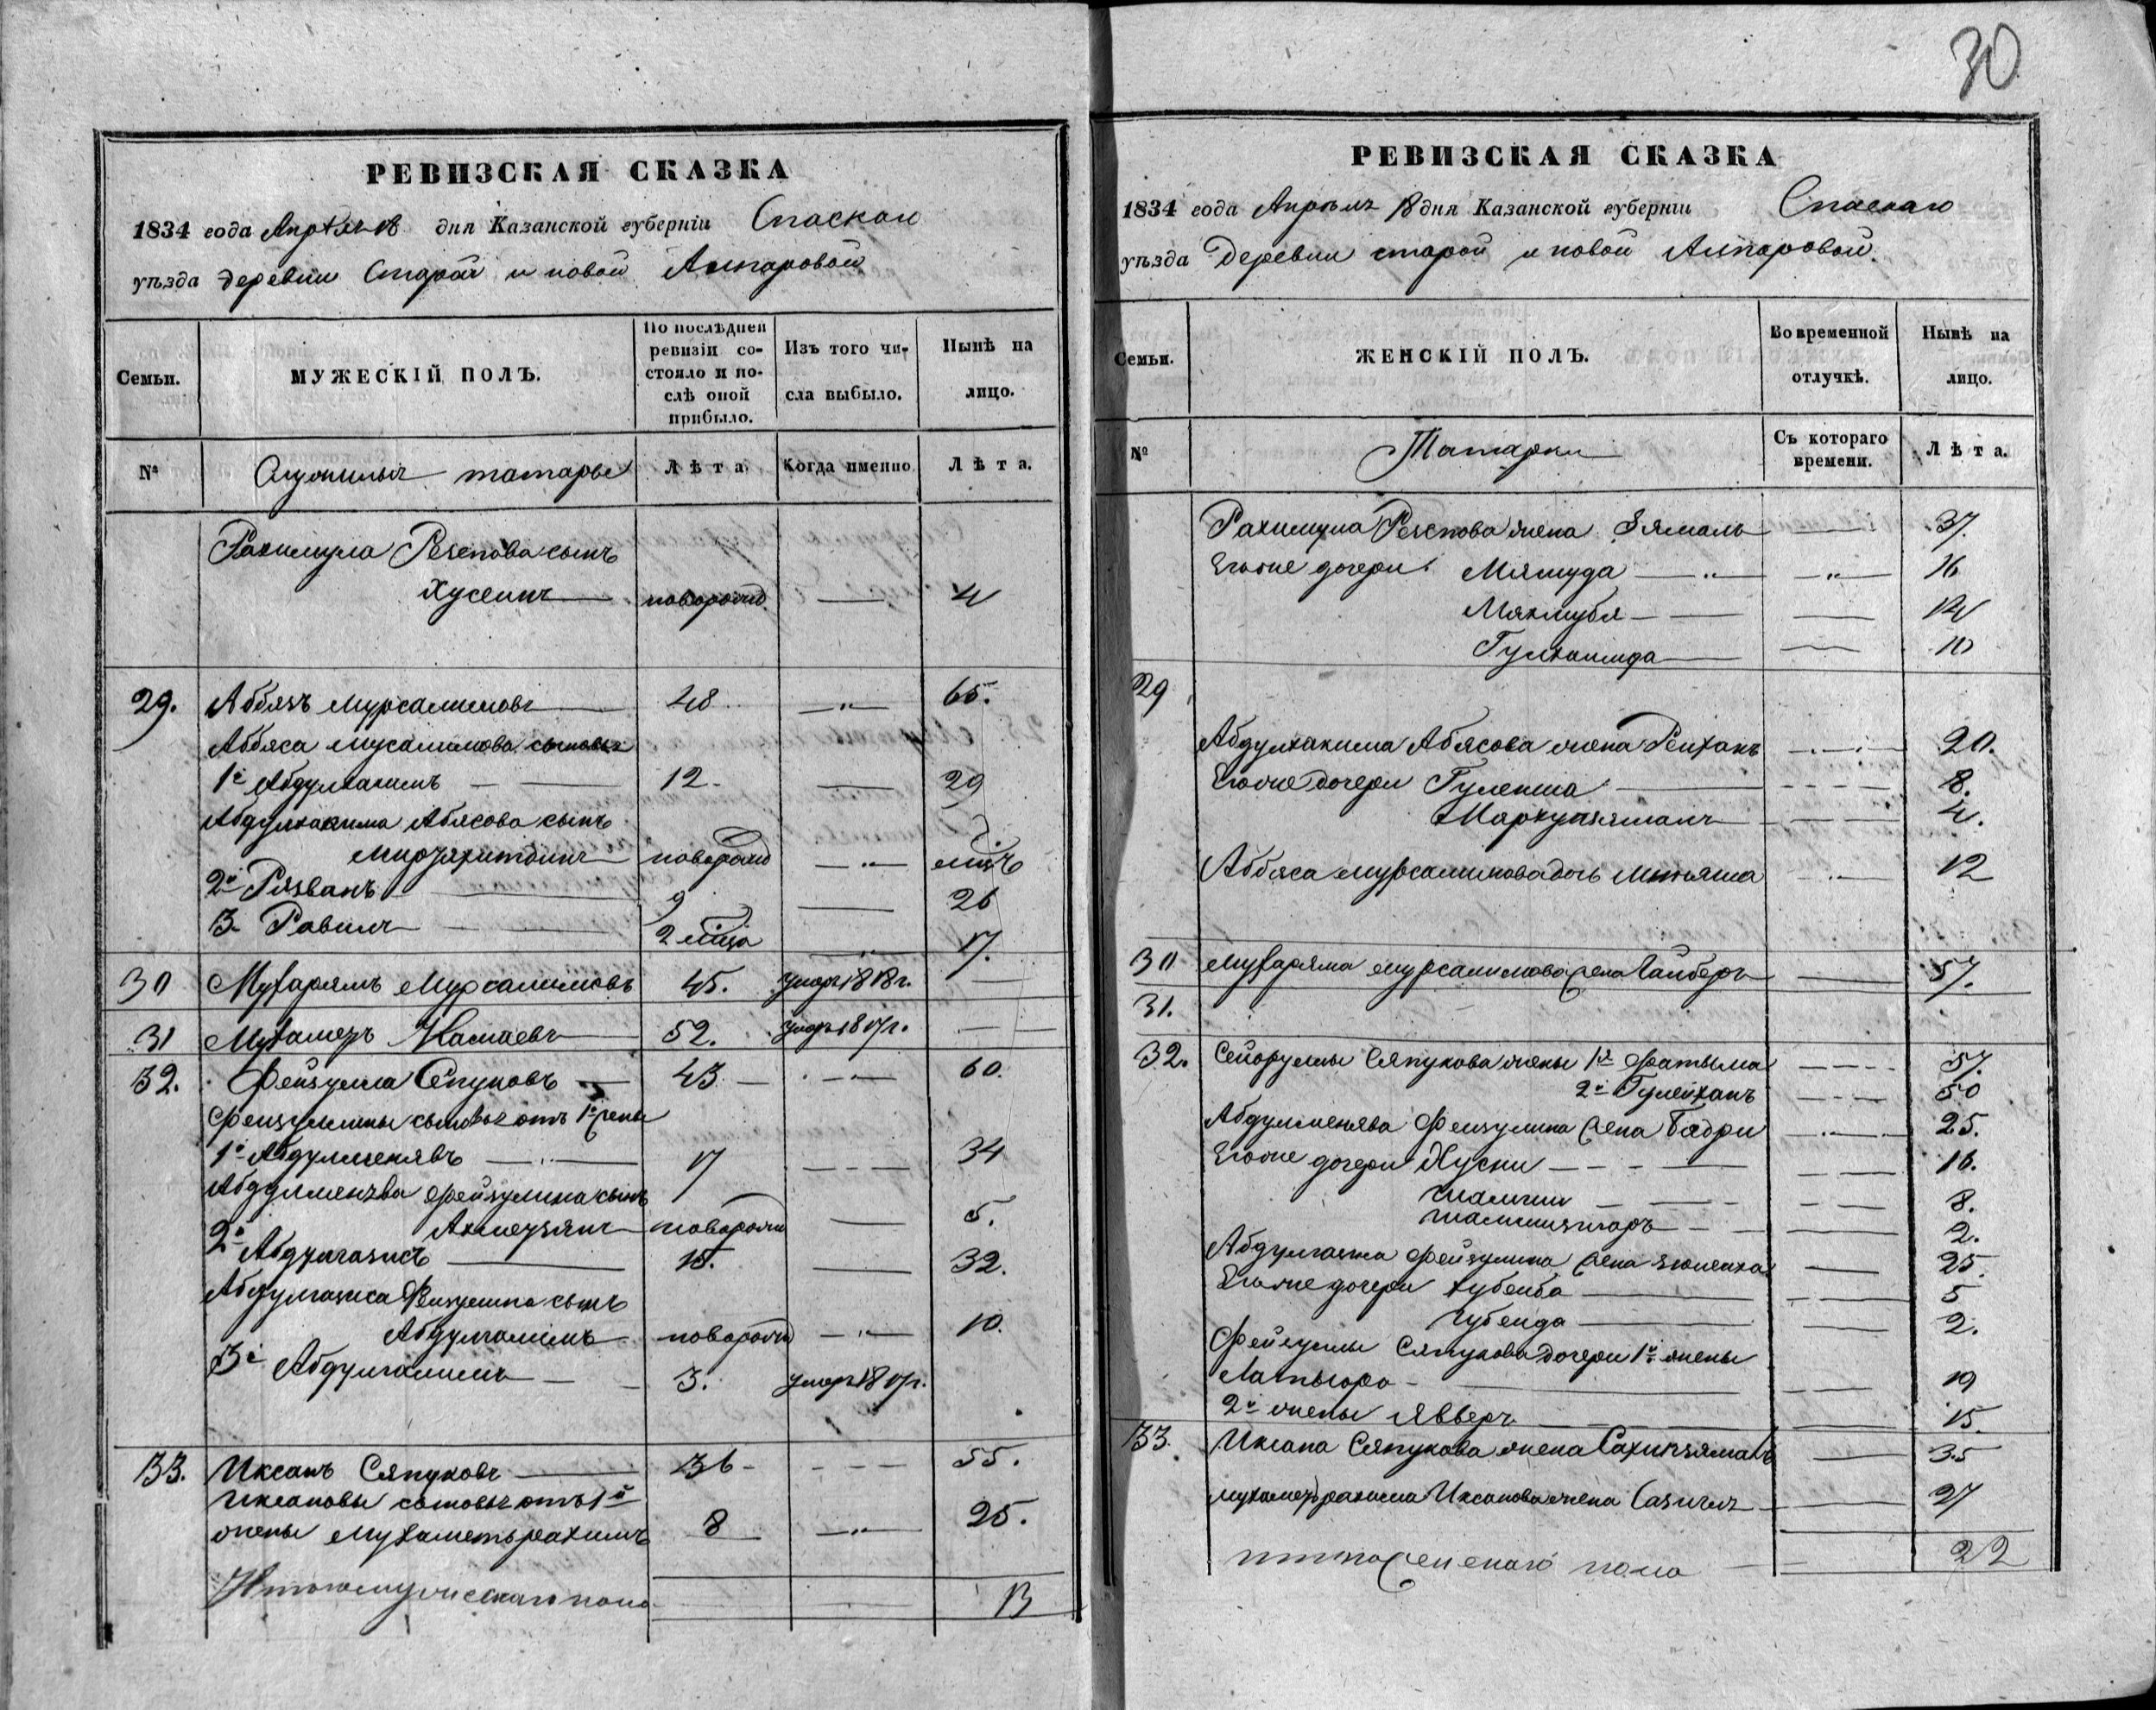 30
РЕВИЗСКАЯ СКАЗКА
1834 года Апреля 18 дня Казанской губерніи Спаскаго
уѣзда Деревни Старой и новой Ампаровой
Семьи. МУЖЕСКІЙ ПОЛЪ. По послѣдней ревизіи состояло и послѣ оной прибыло. Изъ того числа выбыло. Нынѣ на лицо.
№ татары Лѣта Когда именно Лѣта.
Рахимула Резепова сынъ
Хусеинъ новорожд 4
29. Аббязъ Мурсалимовъ 48 65.
Аббяса Мусалимова сыновья
1й Абдулхакимъ 12 29
Абдулхакима Абясова сынъ
новорожд
2й Рязванъ 9 26
3 Равилъ 2 17.
30 Мухарямъ Мурсалимовъ 45. умеръ 1818 г.
31 Мухамеръ 52. умеръ 1817 г.
32. Фейзулла Сяпуковъ 43 60.
Фейзуллины сыновья отъ 1й жены
1й Абдулменявъ 17 34
Абдулменява Фейзулина сынъ
Ахмерзянъ новорожд 5.
2й Абдулгазисъ 15. 32.
Абдулгазиса Фейзулина сынъ
Абдулгалимъ новорожд 10.
3й Абдулгалимъ 3. умеръ 1817 г.
33. Иксанъ Сяпуковъ 36 55.
Иксановы сыновья отъ 1й
жены Мухаметьрахимъ 8 25.
Итого мужескаго пола 13
РЕВИЗСКАЯ СКАЗКА
1834 года Апрѣль 18 дня Казанской губерніи Спаскаго
уѣзда Деревни старой и новой Ампаровой.
Семьи. ЖЕНСКІЙ ПОЛЪ. Во временной отлучкѣ. Нынѣ на лицо.
№ Татарки Съ котораго времени. Лѣта.
Рахимула Резепова жена Зямаль 37.
Егоже дочери Мямуда 16
Мяхмубя 14
10
29
Абдулхакима Абясова жена Рейханъ 20.
Егоже дочери 8.
4.
Аббяса Мурсалимова дочь 12
30 Мухаряма Мурсалимова жена 57.
31.
32. Сяпукова жены 1я Фатыма 57.
2я Гулейханъ 50
Абдулменява Фейзулина жена Бадри 25.
Егоже дочери Хусни 16.
8.
2.
Абдулгазиса Фейзулина жена 25.
Егоже дочери Хубейба 5
Губейда 2.
Фейзуллы Сяпукова дочери 1й жены
19
2й жены Явверъ 15.
33. Иксана Сяпукова жена 35
Мухаметрахима Иксанова жена 27
Итого женскаго пола 22